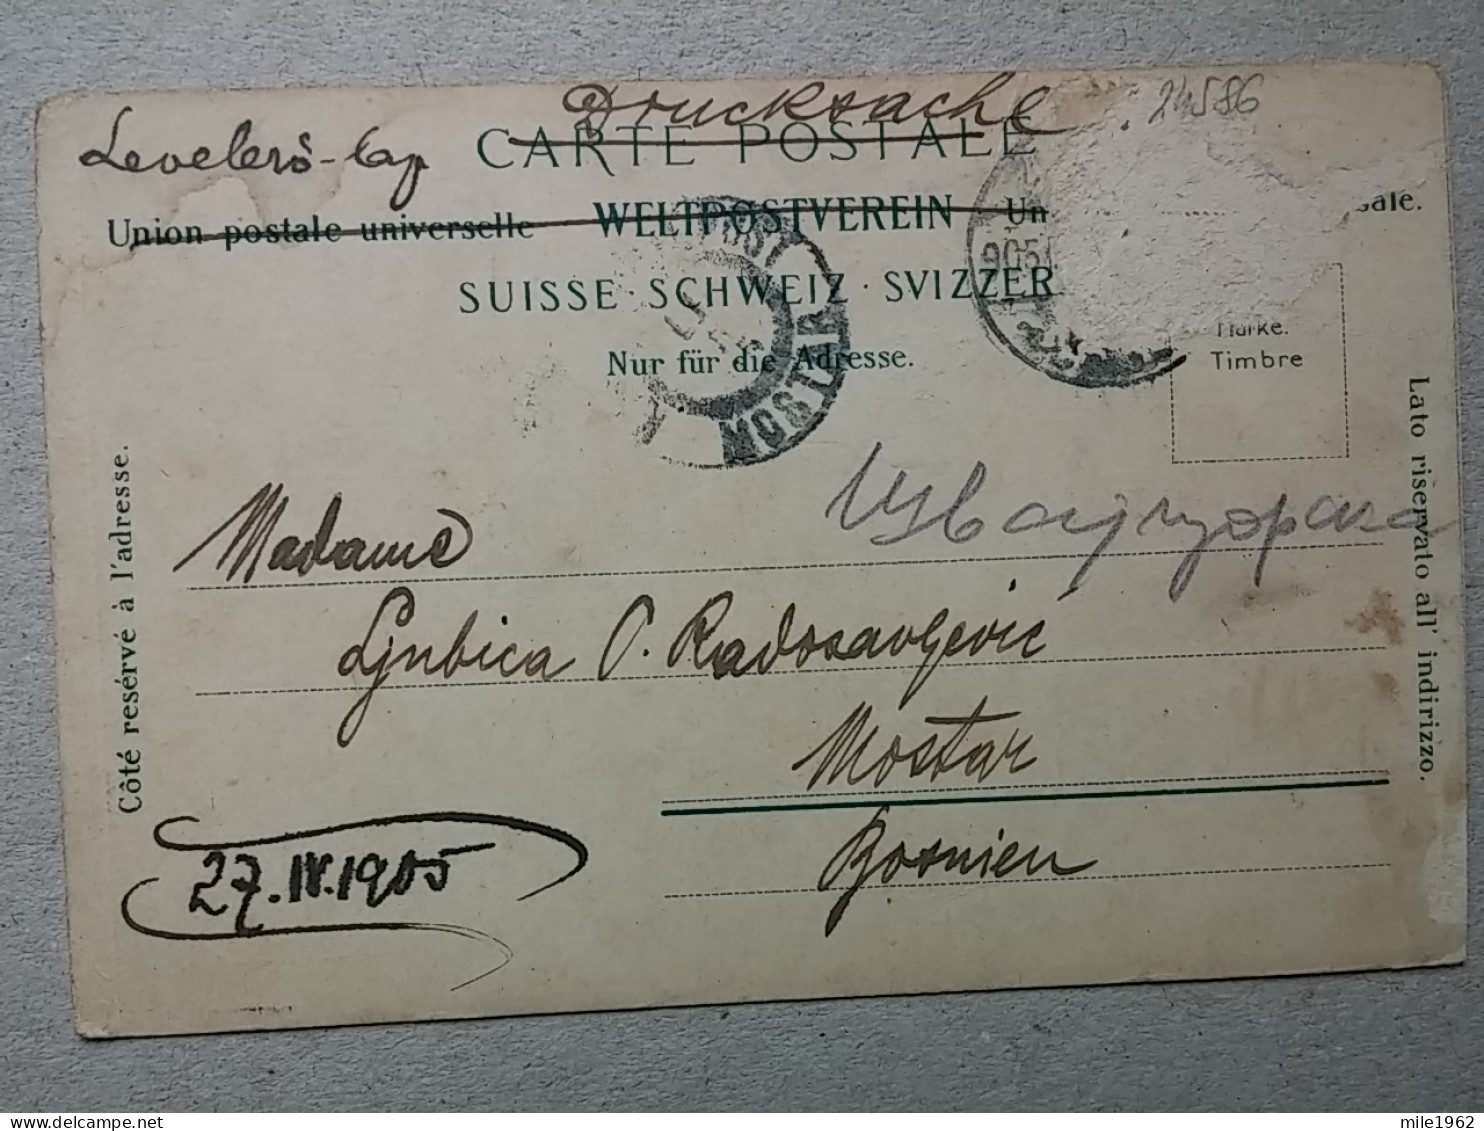 Drucksache
24586
Levelező-Lap
CARTE POSTALE
Union postale universelle WELTPOSTVEREIN Un sale.
SUISSE · SCHWEIZ · SVIZZER
Nur für die Adresse.
905
MOSTAR
Marke.
Timbre
Côté reservé à l'adresse.
Lato riservato all' indirizzo.
Madame
Ljubica O. Radosavljević
Mostar
Bosnien
27.IV.1905
mile1962